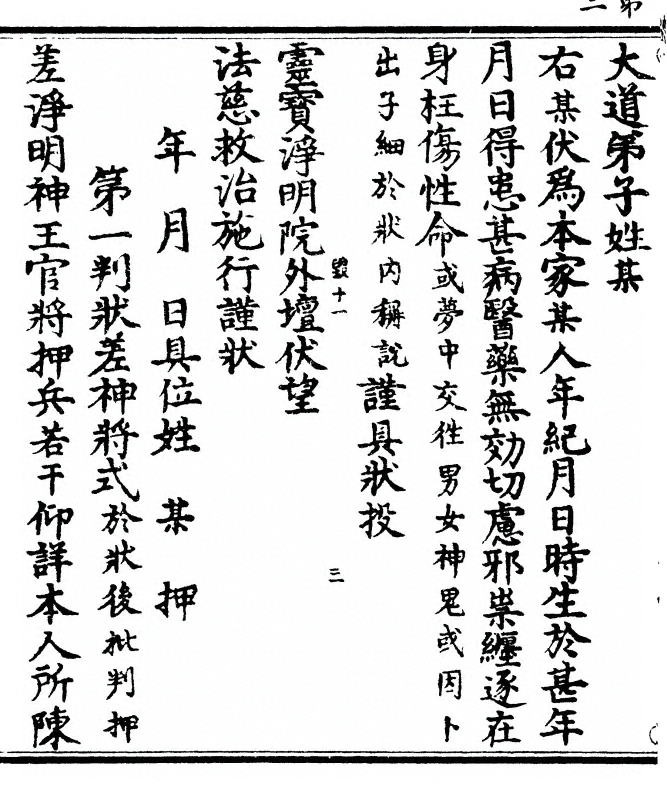 大道弟子姓某
右某伏爲本家某人年紀月日時生於甚年
月日得患甚病醫藥無効切慮邪祟纏逐在
身枉傷性命或夢中交徃男女神鬼或因卜
出子細於狀内稱説謹具狀投
毀十一
三
靈寶淨明院外壇伏望
法慈救治施行謹狀
年月日具位姓某押
第一判狀差神將式於狀後批判押
差淨明神王官將押兵若干仰詳本人所陳